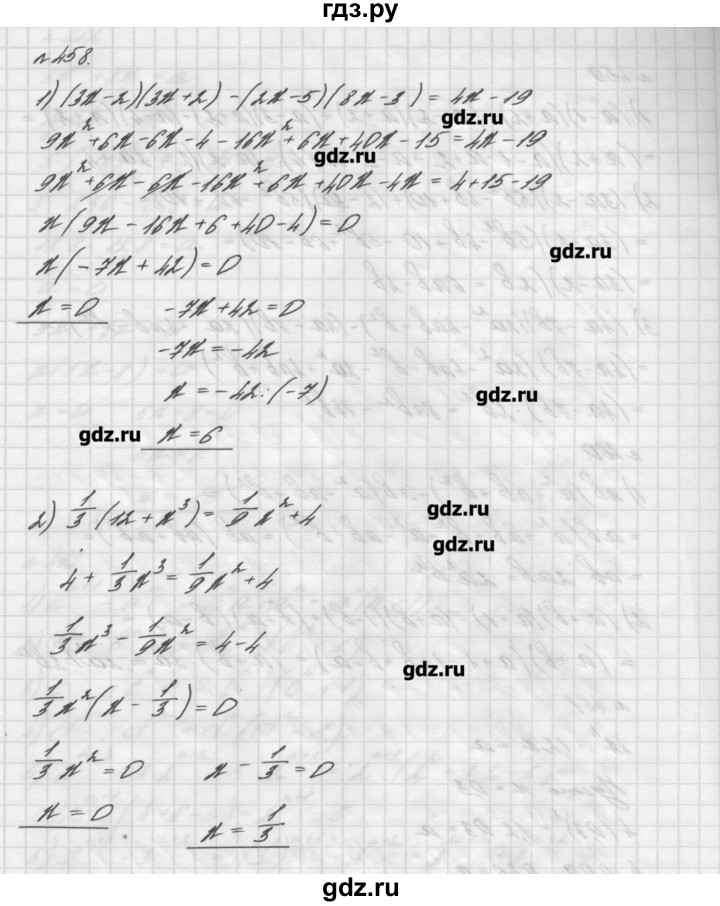 гдз.ру
n 458.
1) (3x-2)(3x+2) - (2x-5)(8x-3) = 4x-19
gdz.ru
9x² + 6x - 6x - 4 - 16x² + 6x + 40x - 15 = 4x - 19
gdz.ru
9x² + 6x - 6x - 16x² + 6x + 40x - 4x = 4 + 15 - 19
x(9x - 16x + 6 + 40 - 4) = 0
gdz.ru
x(-7x + 42) = 0
x = 0 -7x + 42 = 0
-7x = -42
x = -42 : (-7)
gdz.ru
gdz.ru x = 6
2) 1/3 (12 + x³) = 1/9 x² + 4
gdz.ru
gdz.ru
4 + 1/3 x³ = 1/9 x² + 4
1/3 x³ - 1/9 x² = 4 - 4
gdz.ru
1/3 x² (x - 1/3) = 0
1/3 x² = 0 x - 1/3 = 0
x = 0 x = 1/3
gdz.ru